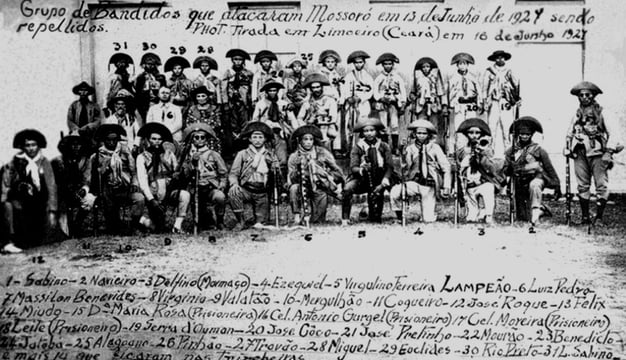 Grupo de Bandidos que atacaram Mossoró em 13 de Junho de 1927 sendo
repellidos. Phot. Tirada em Limoeiro (Ceará) em 16 de Junho 1927
31 30 29 28 25
12 11 10 9 8 7 6 5 4 3 2
1 - Sabino - 2 Navieiro - 3 Delfino (Mormaço) - 4 Ezequiel - 5 Virgulino Ferreira LAMPEÃO - 6 Luiz Pedro
7 Massilon Benevides - 8 Virginio - 9 Valatão - 10 - Mergulhão - 11 Coqueiro - 12 José Roque - 13 Felix
14 Miudo - 15 Dª Maria Rosa (Prisioneira) 16 Cel. Antonio Gurgel (Prisioneiro) 17 Cel. Moreira (Prisioneiro)
18 Leite (Prisioneiro) - 19 Serra d'Ouman - 20 José Côco - 21 José Pretinho - 22 Mourão - 23 Benedicto
24 Jatobá - 25 Alagoano - 26 Pinhão - 27 Trovão - 28 Miguel - 29 Euclides - 30 Rio Preto - 31 L. Sabino
e mais 14 que ficaram nas Trincheiras